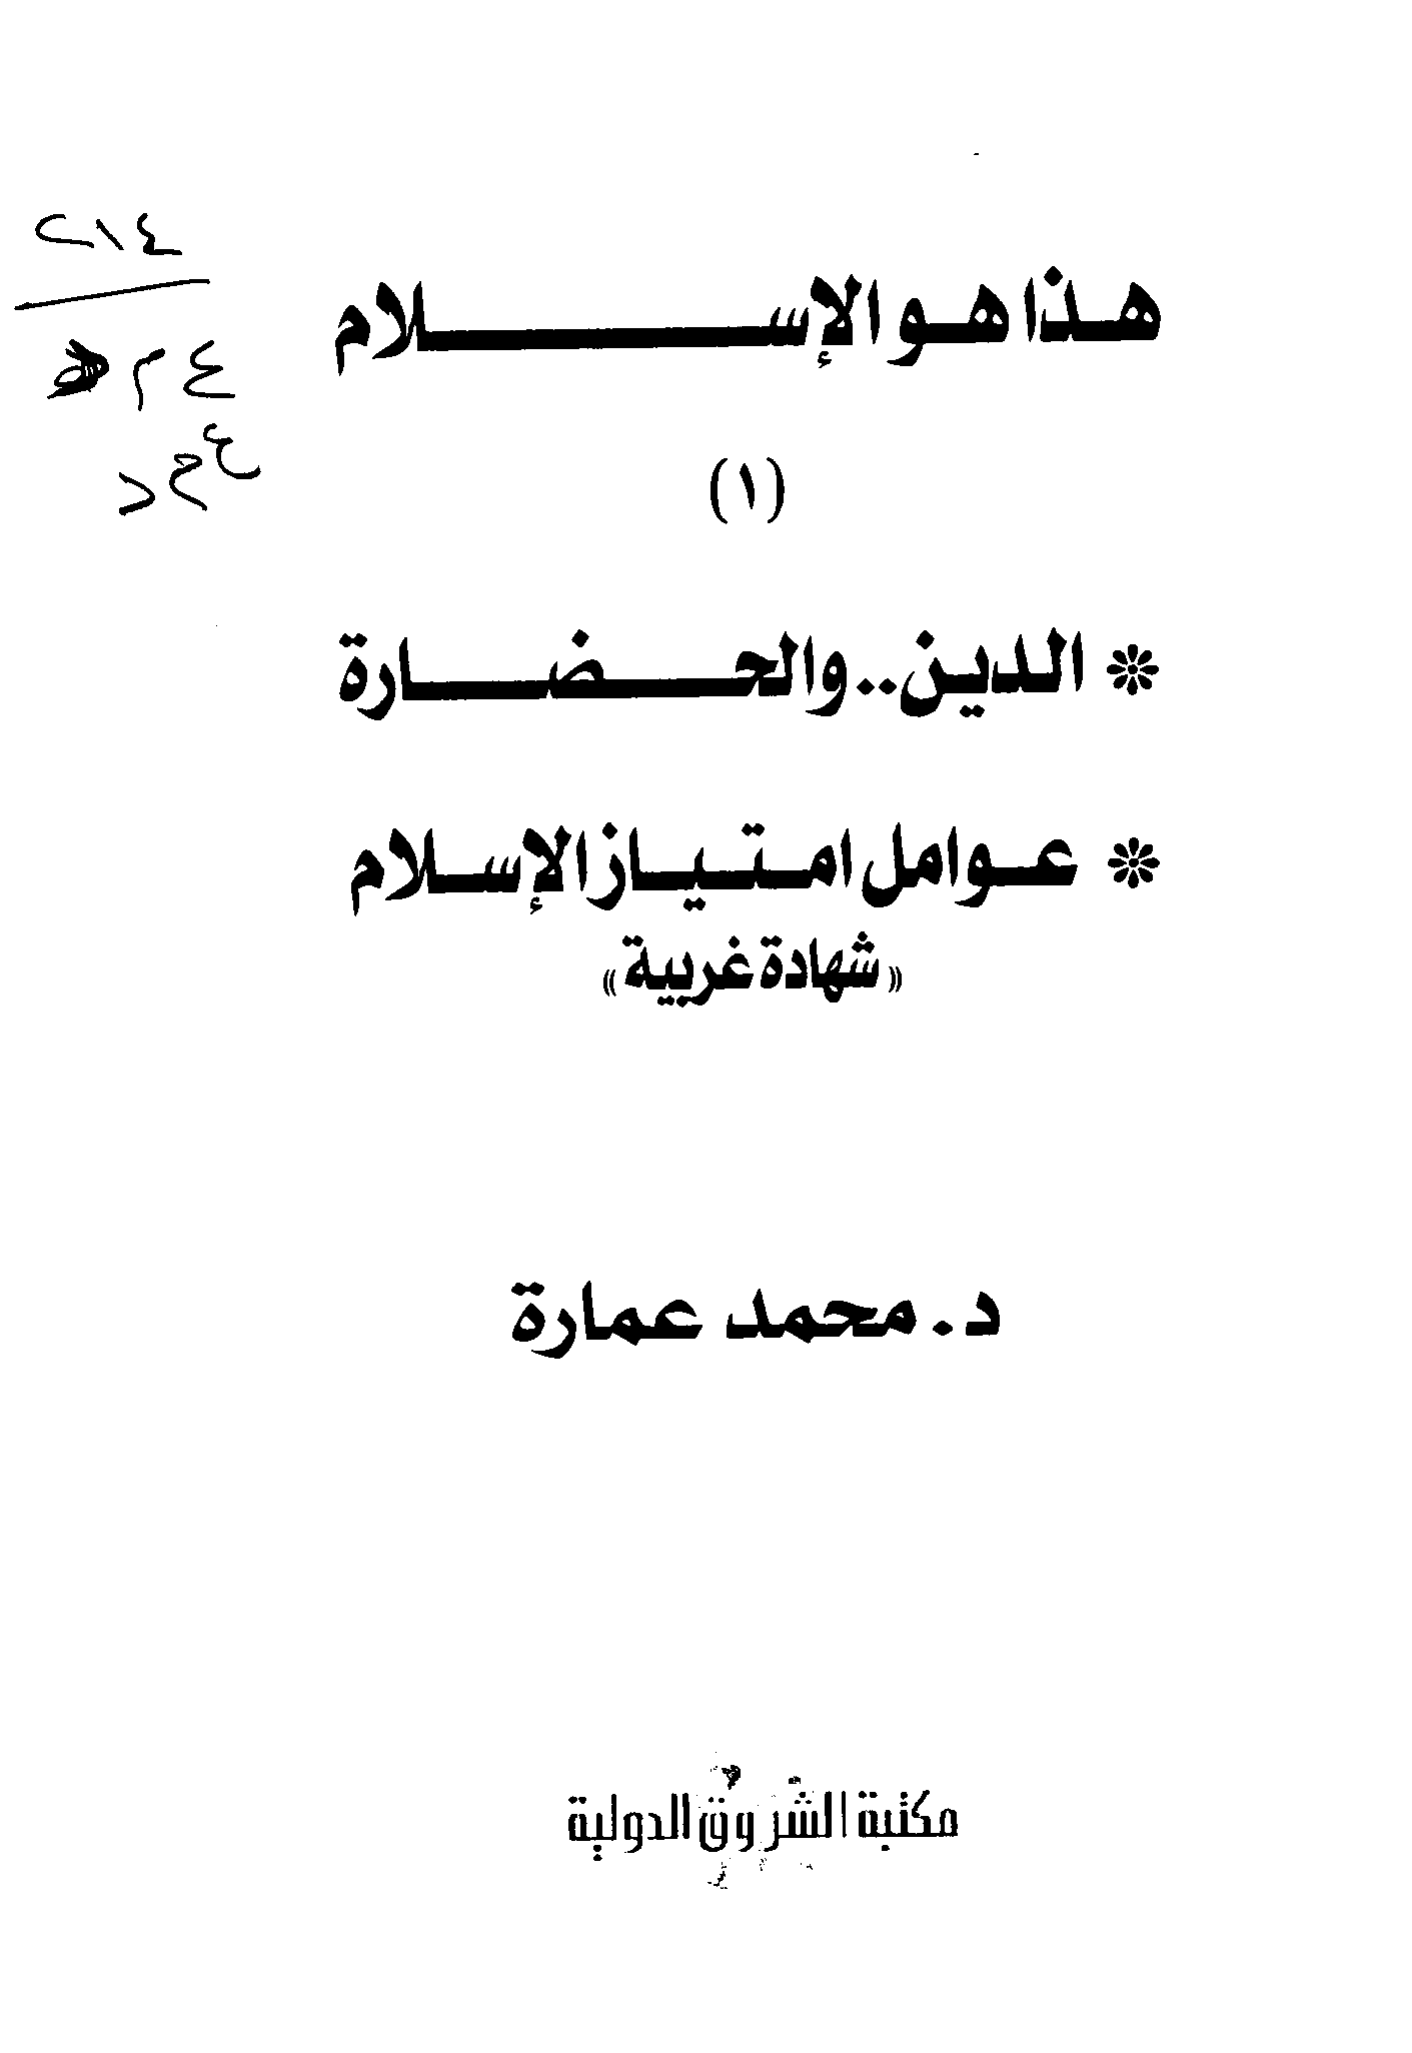 ٢١٤
هذا هو الإسلام
ع م
(١)
ع م د
* الدين.. والحضارة
* عوامل امتياز الإسلام
«شهادة غربية»
د. محمد عمارة
مكتبة الشروق الدولية